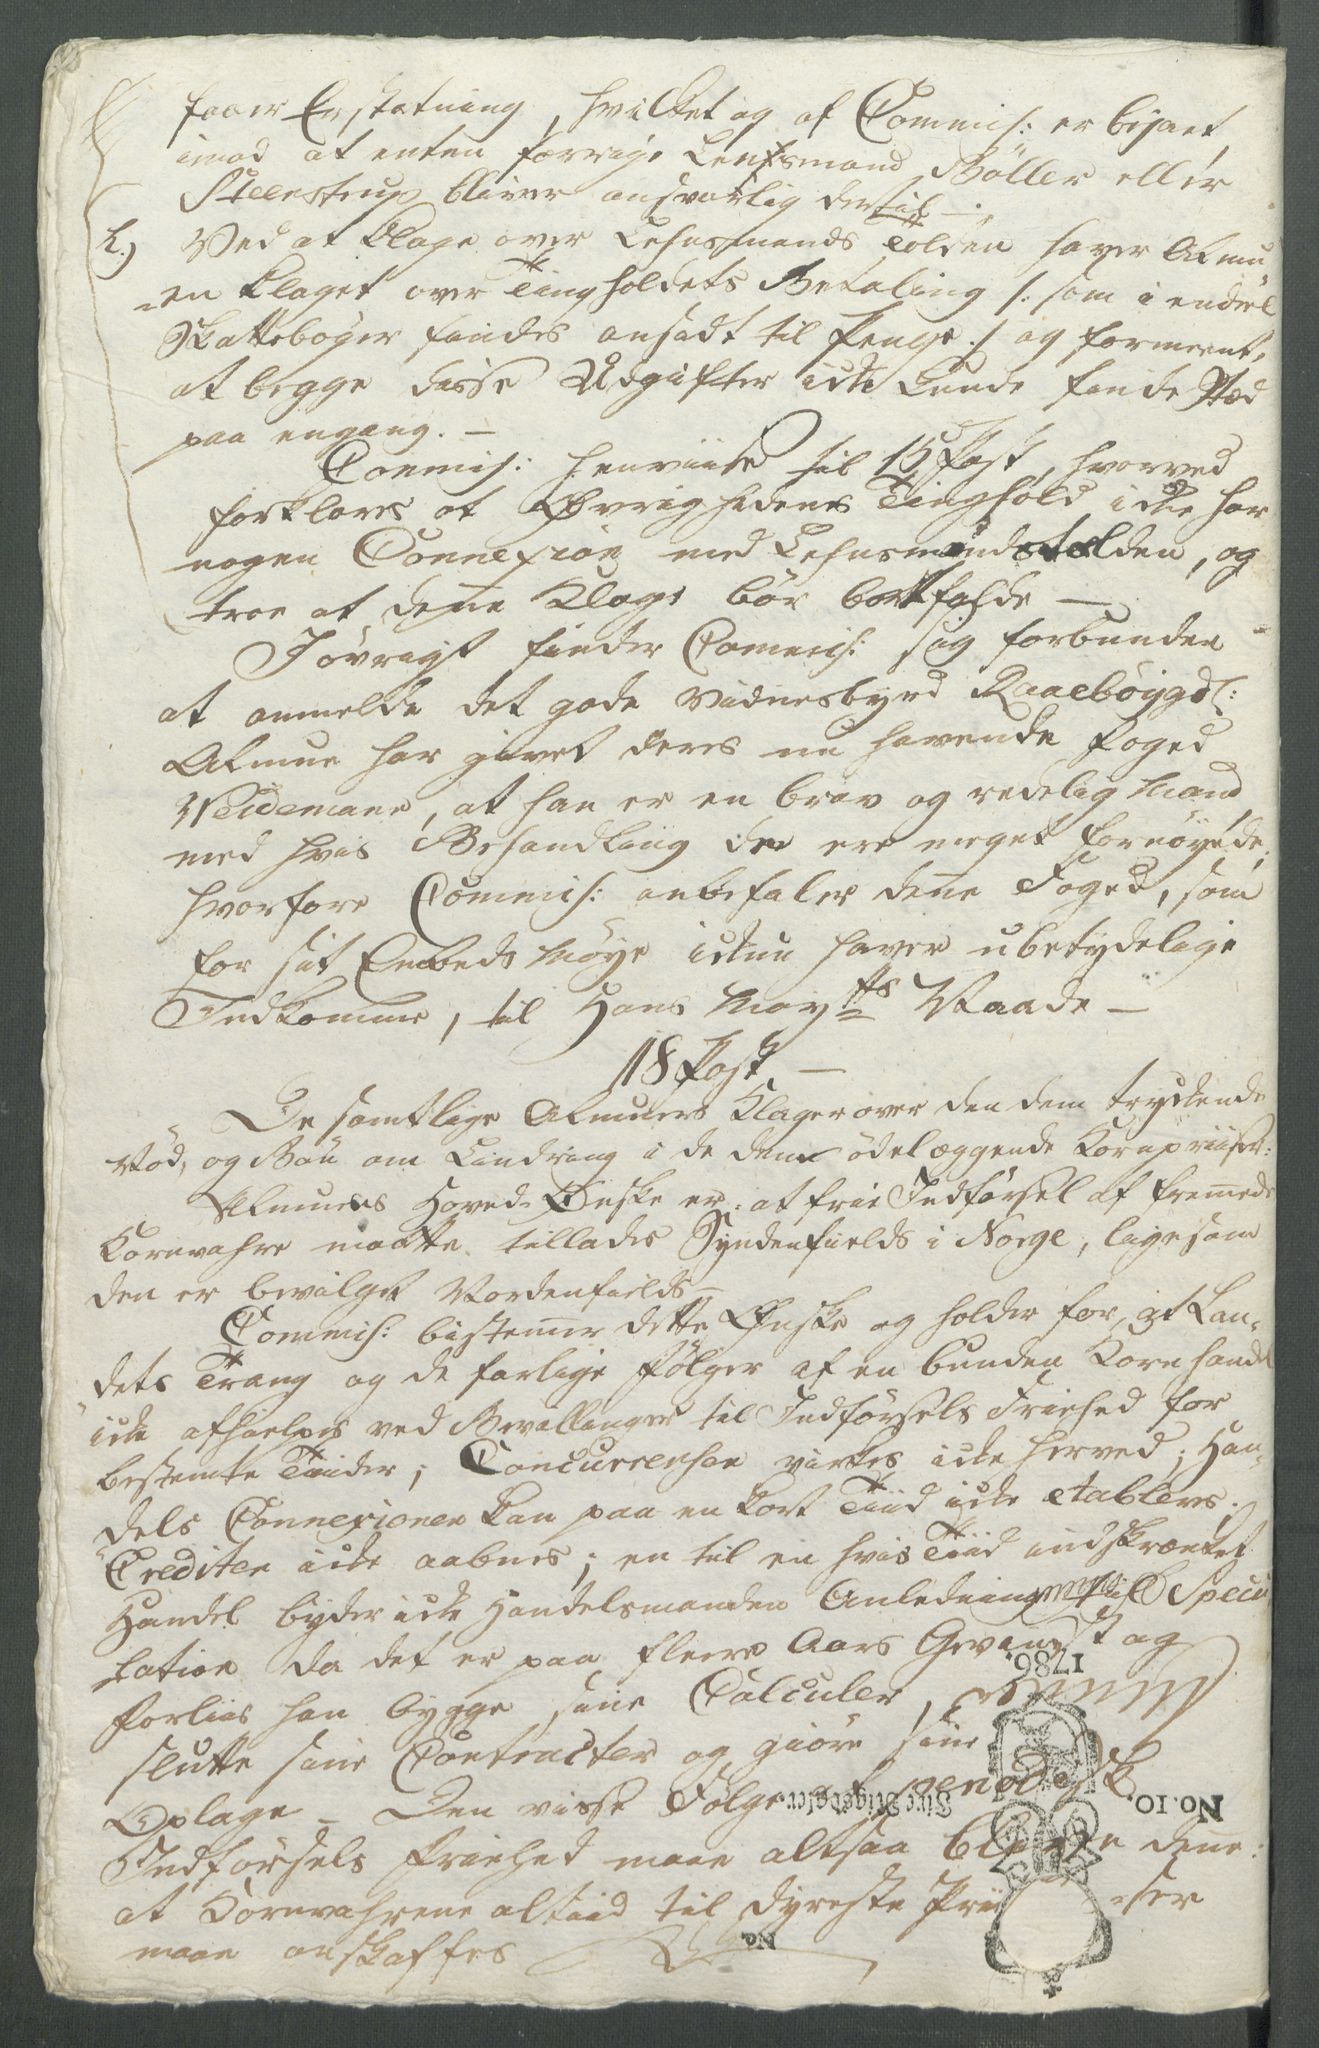 faaer Erstatning, hvilket og af Commis: er bejaet,
imod at enten forrige Lensmand Böller eller
Steenstrup bliver ansvarlig dertil —.
L.) Ved at klage over Lehnsmands Tolden haver Almu¬
en klaget over Tingholdets Betaling /: som i endeel
Skattebøger findes ansadt til Penge :/ og formeent,
at begge disse Udgifter icke kunde finde Stæd
paa engang. —
Commis: henviise til 15 Post, hvorved
forklares at Øvrighedens Tinghold icke har
nogen Connexion med Lehnsmandstolden, og
troe at denne Klage bör bortfalde —
Jövrigt finder Commis: sig forbunden
at anmelde det gode Vidnesbyrd Raaebøygd:
Almue har givet deres nu havende Foged
Weidemann, at han er en brav og redelig Mand
med hvis Behandling de ere meget fornöyede;
hvorfore Commis: anbefaler denne Foged, som
for sit Embeds Møye ickun haver ubetydelige
Indkomme, til Hans Mayts Naade —
18 Post —
De samtlige Almuers Klager over den dem tryckende
Nöd, og Bön om Lindring i de dem ödelæggende Kornpriiser:
Almuens Hoved Ønske er: at frie Indförsel af fremmede
Kornvahre maatte tillades Syndenfields i Norge, ligesom
den er bevilget Nordenfields —
Commis: bistemmer dette Ønske og holder for, at Lan¬
dets Trang og de farlige Fölger af en bunden Kornhandel
icke afhielpes ved Bevillinger til Indförsels Friehed for
bestemte Tiider; Concurrensen virkes icke herved; Han¬
dels Connexioner kan paa en kort Tiid icke etableres;
Crediten icke aabnes; en til en hvis Tiid indskrænket
Handel byder icke Handelsmanden Anledning til Specu
lation da det er paa fleere Aars Gevinst og
Forliis han bygge sine Calculer,
slutte sine Contracter og giöre sine
Oplage — Den visse Fölge af periodisk
Indförsels Friehed maae altsaa blive denne:
at Kornvahrene altiid til dyreste Priiser
maae anskaffes
1786.
No. 10.